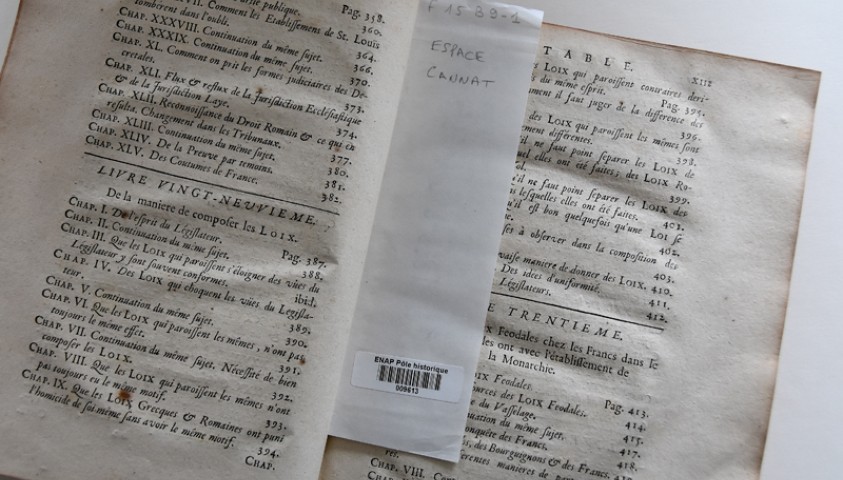 VII. Comment les Etablissemens de St. Louis
tomberent dans l'oubli. 360.
Pag. 358.
CHAP. XXXVIII. Continuation du même sujet. 364.
CHAP. XXXIX. Continuation du même sujet. 366.
CHAP. XL. Comment on prit les formes judiciaires des De-
cretales. 370.
CHAP. XLI. Flux & reflux de la Jurisdiction Ecclésiastique
& de la Jurisdiction Laye. 373.
CHAP. XLII. Reconnoissance du Droit Romain & ce qui en
resulta. Changement dans les Tribunaux. 374.
CHAP. XLIII. Continuation du même sujet. 377.
CHAP. XLIV. De la Preuve par temoins. 380.
CHAP. XLV. Des Coutumes de France. 381.
382.
LIVRE VINGT-NEUVIEME.
De la maniere de composer les LOIX.
CHAP. I. De l'esprit du Législateur. Pag. 387.
CHAP. II. Continuation du même sujet. 388.
CHAP. III. Que les LOIX qui paroissent s'éloigner des vües du
Législateur y sont souvent conformes. ibid.
CHAP. IV. Des LOIX qui choquent les vües du Législa-
teur. 389.
CHAP. V. Continuation du même sujet. 390.
CHAP. VI. Que les LOIX qui paroissent les mêmes, n'ont pas
toujours le même effet. 391.
CHAP. VII. Continuation du même sujet. Nécessité de bien
composer les LOIX. 392.
CHAP. VIII. Que les LOIX qui paroissent les mêmes n'ont
pas toujours eu le même motif. 393.
CHAP. IX. Que les LOIX Grecques & Romaines ont puni
l'homicide de soi même sans avoir le même motif. 394.
CHAP.
F 15 89-1
ESPACE
CANNAT
ENAP Pôle historique
009613
TABLE. XIII
LOIX qui paroissent contraires deri-
du même esprit. Pag. 395.
comment il faut juger de la différence des
396.
des LOIX qui paroissent les mêmes sont
différentes. 398.
il ne faut point séparer les LOIX de
quel elles ont été faites; des LOIX Ro-
399.
qu'il ne faut point séparer les LOIX des
lesquelles elles ont été faites. 401.
qu'il est bon quelquefois qu'une LOI se
402.
à observer dans la composition des
403.
maniere de donner des LOIX. 410.
Des idées d'uniformité. 411.
Législateurs. 412.
TRENTIEME.
Feodales chez les Francs dans le
les ont avec l'établissement de
la Monarchie.
LOIX Feodales. Pag. 413.
sources des LOIX Feodales. 414.
du Vasselage. 415.
du même sujet. 417.
conquête des Francs. 418.
des Bourguignons & des Francs.
CHAP. VIII.